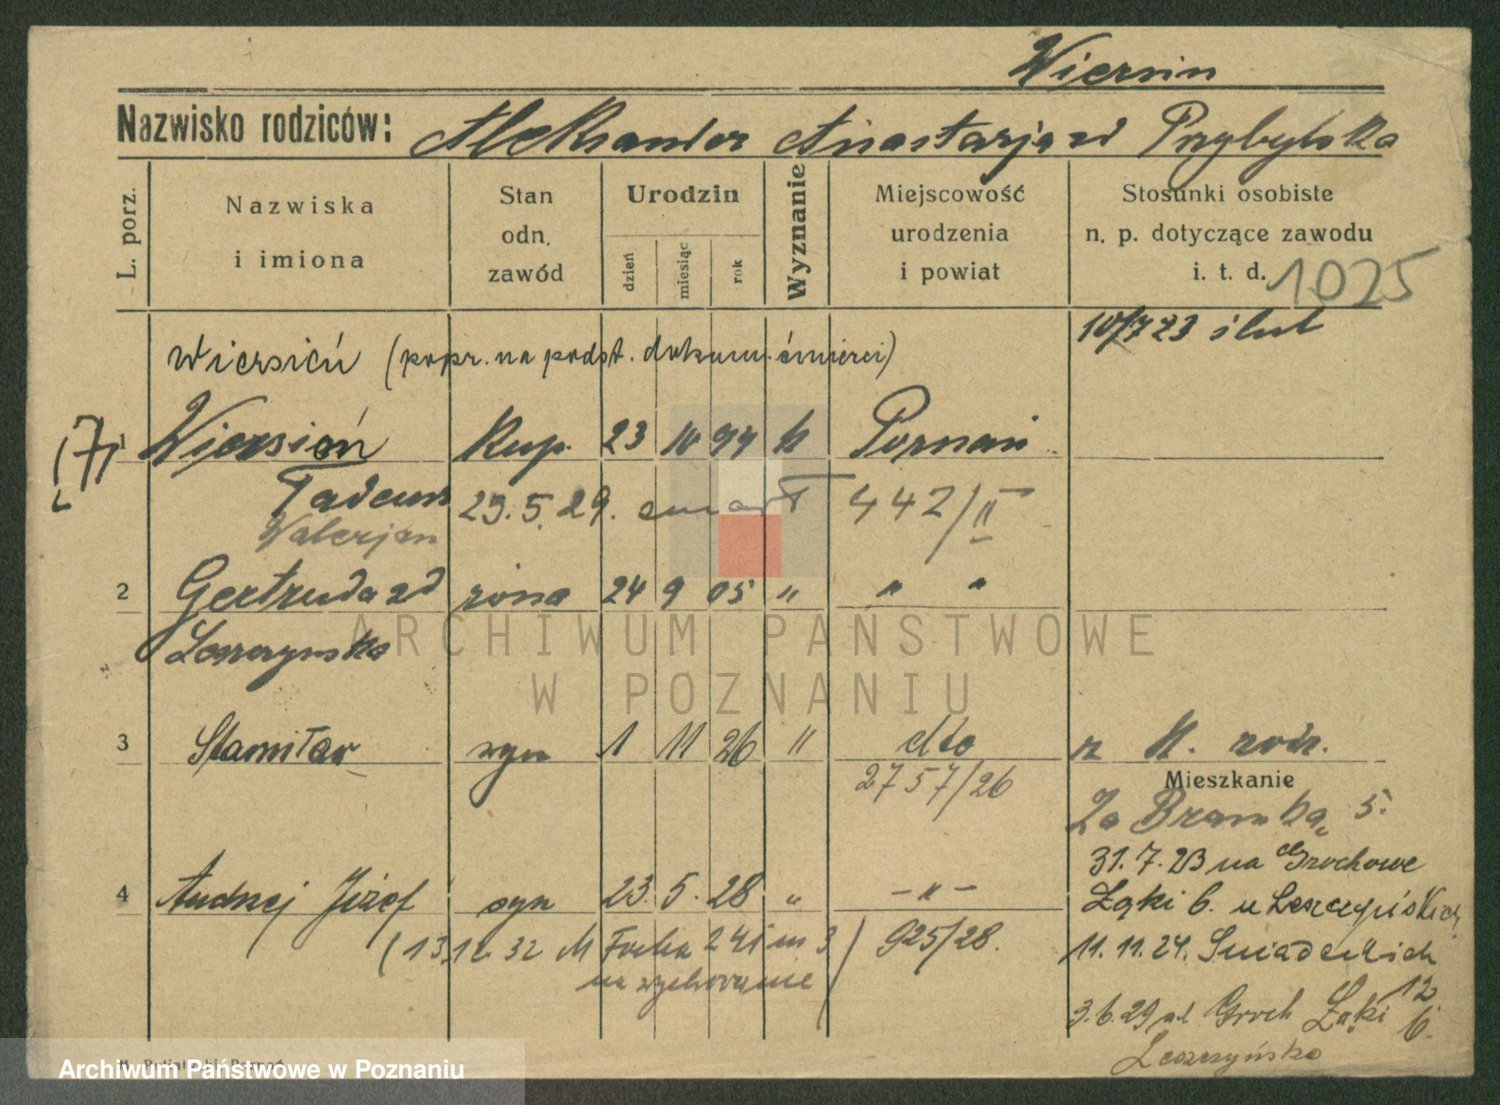 Wiersin
Nazwisko rodziców: Aleksander Anastazja zd Przybylska
L. porz.
Nazwiska i imiona
Stan odn. zawód
Urodzin
dzień
miesiąc
rok
Wyznanie
Miejscowość urodzenia i powiat
Stosunki osobiste n. p. dotyczące zawodu i. t. d.
1025
10/7 23 ślub
Wiersiń (popr. na podst. dokum. śmierci)
(7)
1 Wiersiń Kup. 23 10 99 k Poznań
Tadeusz 29.5.29. zmarł 442/II
Walerjan
2 Gertruda zd żona 24 9 05 " " "
Leszczyńska
ARCHIWUM PAŃSTWOWE
W POZNANIU
3 Stanisław syn 1 11 26 " dto z k. rodz.
2757/26
Mieszkanie
Za Bramką 5.
31.7.23 na Grochowe
4 Andrzej Józef syn 23. 5. 28 " — " —
Łąki 6. u Leszczyńskiej
(13.12.32 M Focha 241 m 3) 925/28.
na wychowanie
11.11.24. Śniadeckich 12
3.6.29 ul Groch Łąki 6.
Leszczyńska
Archiwum Państwowe w Poznaniu